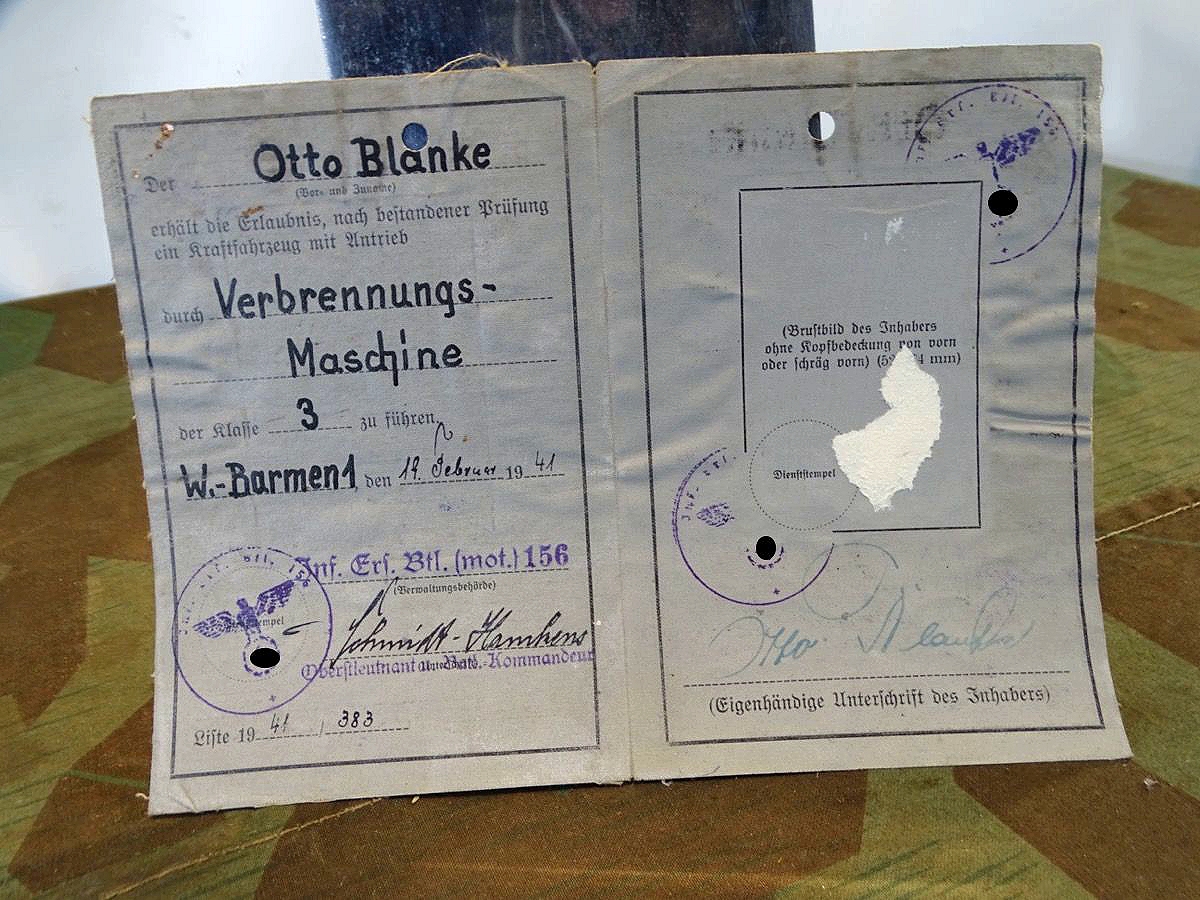 Otto Blanke
Der
(Vor- und Zuname)
erhält die Erlaubnis, nach bestandener Prüfung
ein Kraftfahrzeug mit Antrieb
durch Verbrennungs-
Maschine
der Klasse 3 zu führen
W.-Barmen1, den 19. Februar 1941
Inf. Ers. Btl. (mot.) 156
(Verwaltungsbehörde)
Schmidt-Hankens
Oberstleutnant u. Btls.-Kommandeur
Liste 1941 / 383
(Brustbild des Inhabers
ohne Kopfbedeckung von vorn
oder schräg vorn) mm)
Dienststempel
Otto Blanke
(Eigenhändige Unterschrift des Inhabers)